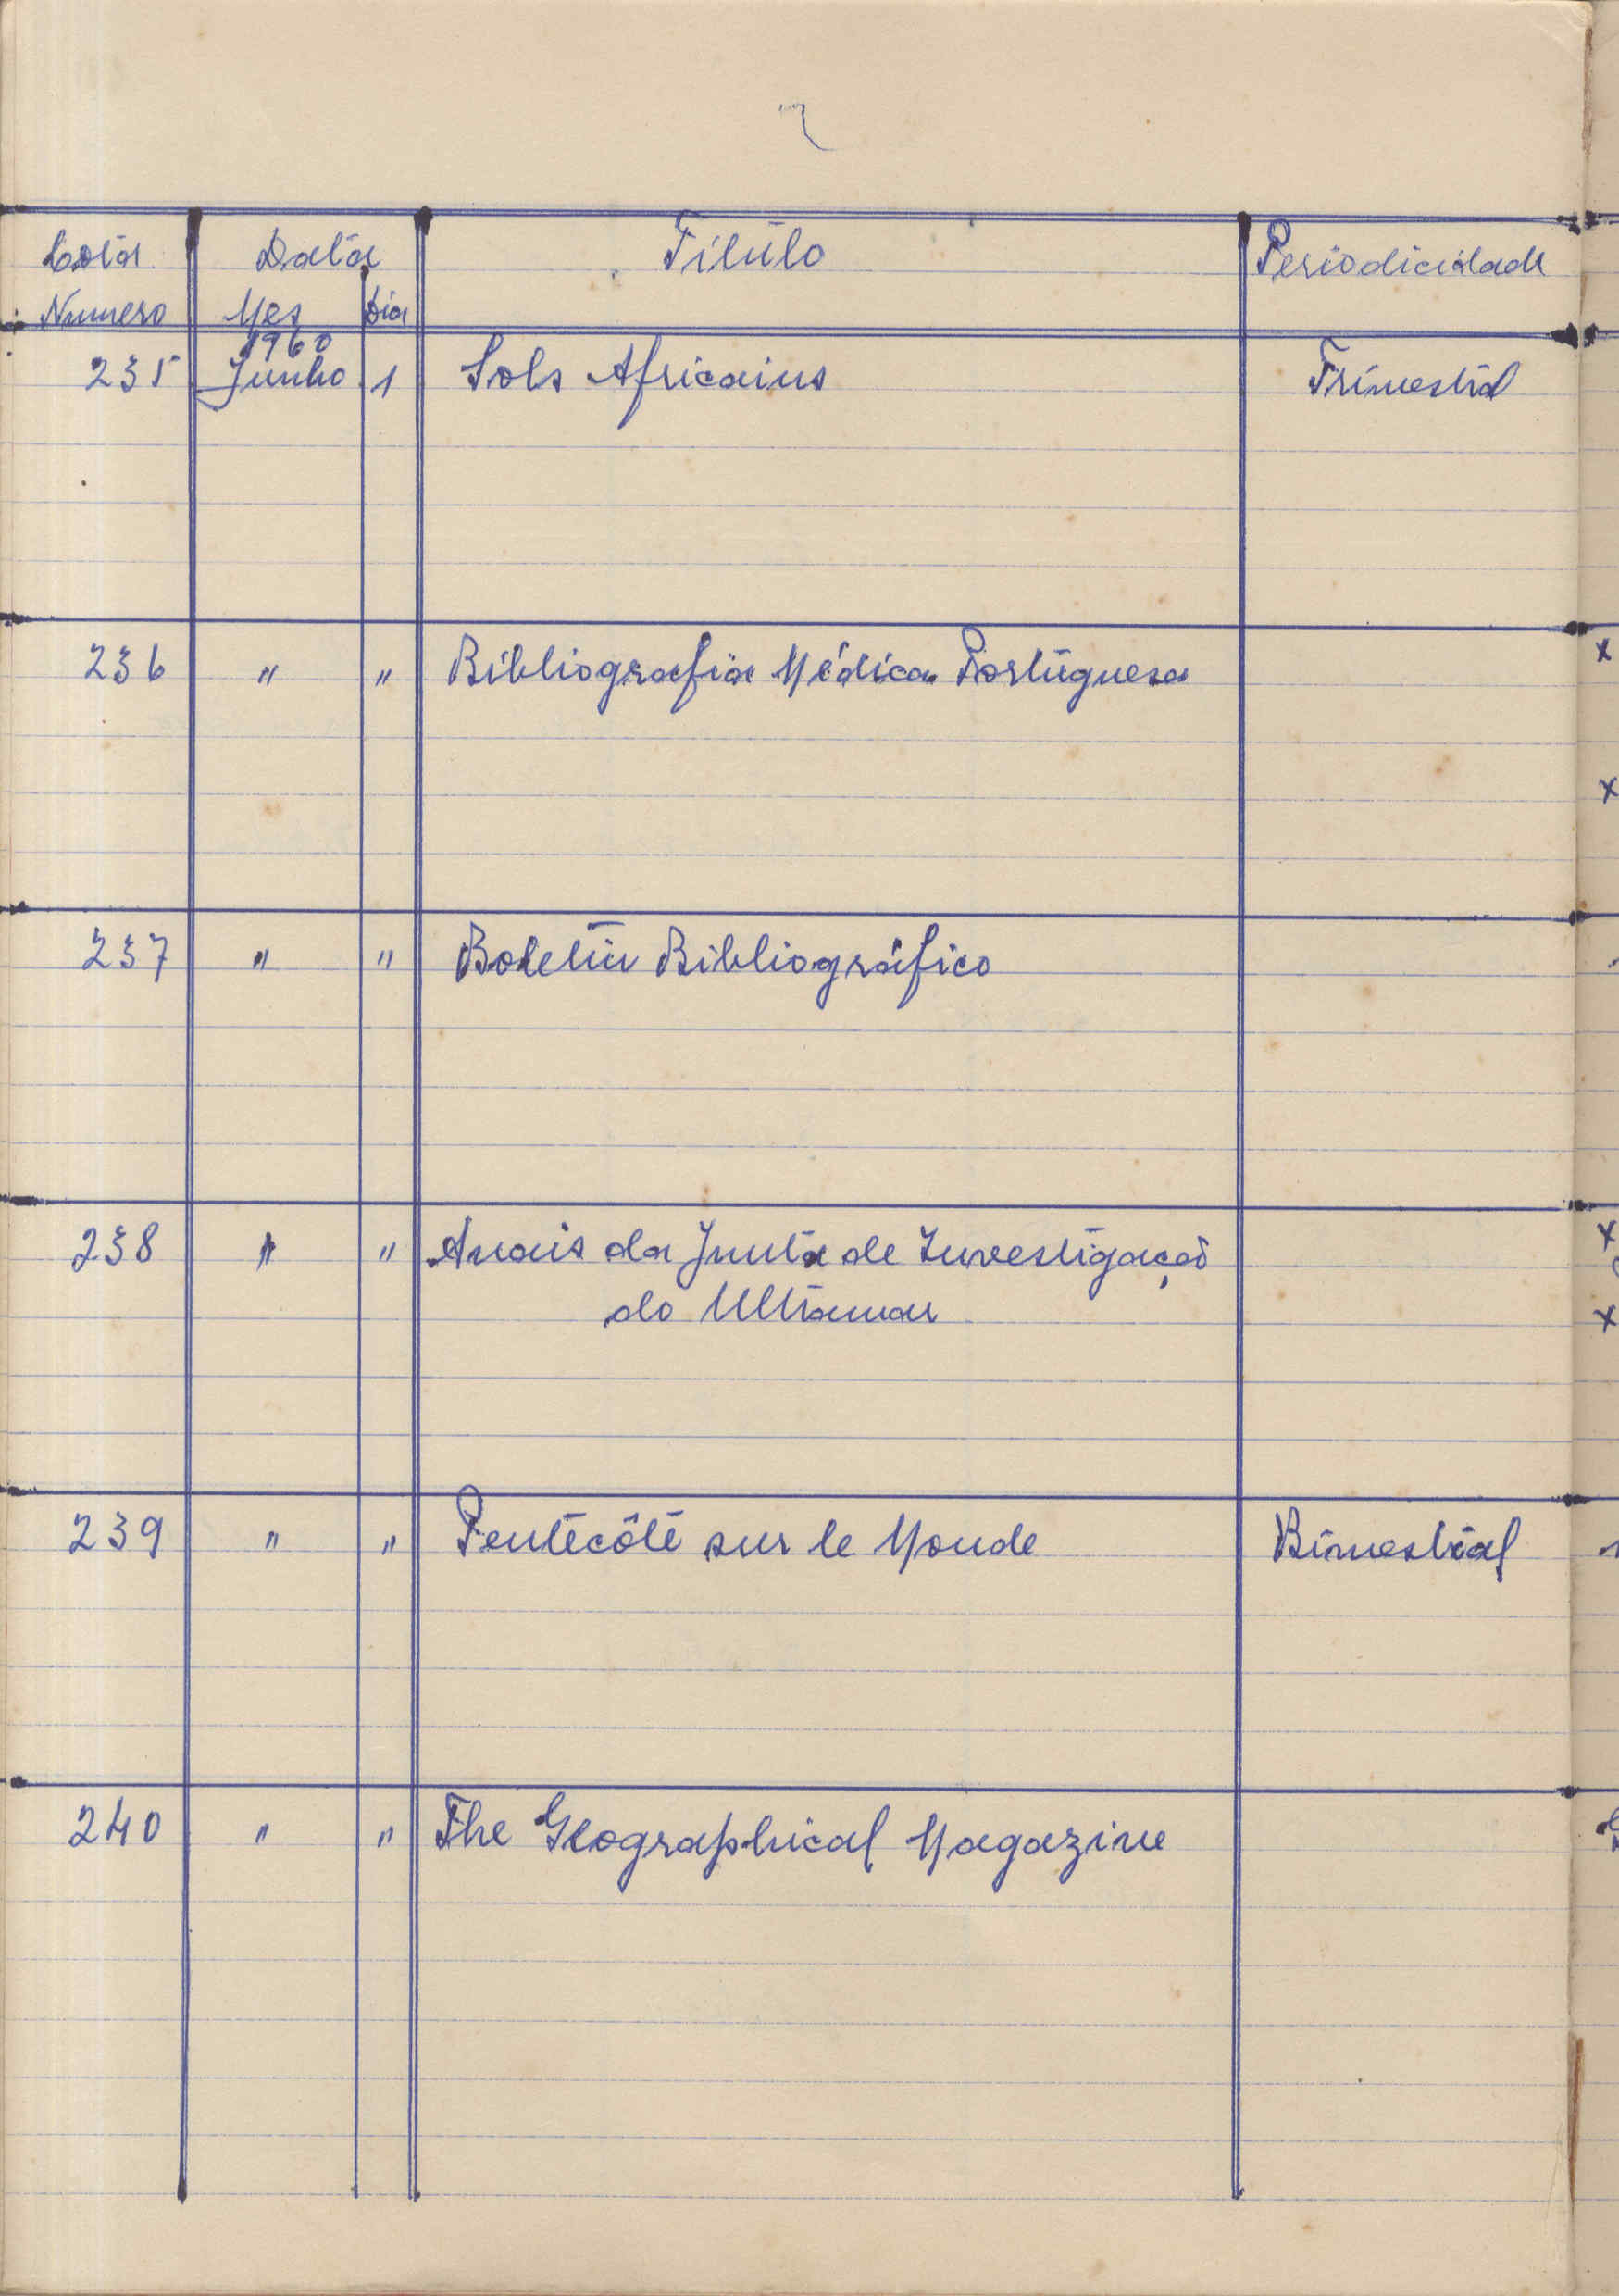 Cota Data Título Periodicidade
Numero Mes Dia
1960
235 Junho 1 Sols Africains Trimestral
236 " " Bibliografia Médica Portuguesa
237 " " Boletim Bibliográfico
238 " " Anais da Junta de Investigação
do Ultramar
239 " " Pentecôte sur le Monde Bimestral
240 " " The Geographical Magazine